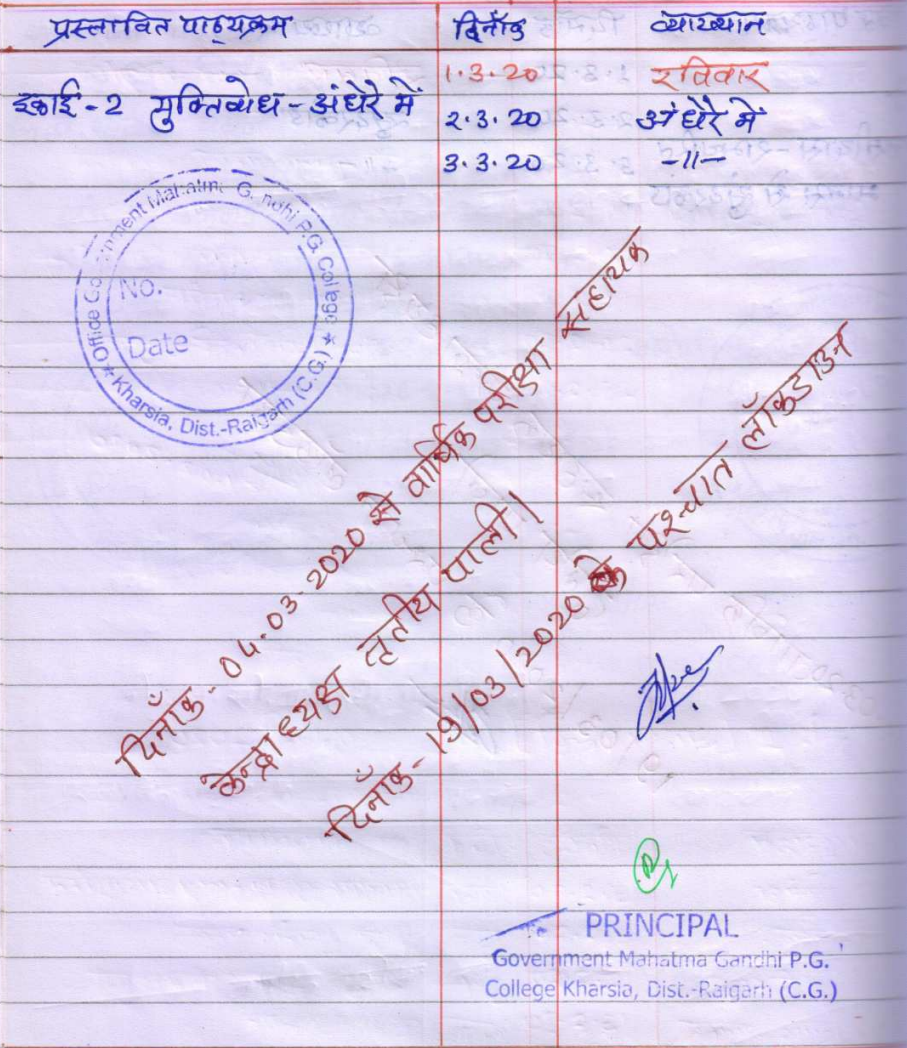 प्रस्तावित पाठ्यक्रम दिनाँक व्याख्यान
1.3.20 रविवार
इकाई-2 मुक्तिबोध-अंधेरे में 2.3.20 अंधेरे में
3.3.20 -11-
Office Government Mahatma Gandhi P.G. College * Kharsia, Dist.-Raigarh (C.G.) *
No.
Date
दिनाँक- 04.03.2020 से वार्षिक परीक्षा सहायक
केन्द्राध्यक्ष तृतीय पाली।
दिनाँक- 19/03/2020 के पश्चात लॉकडाउन
PRINCIPAL
Government Mahatma Gandhi P.G.
College Kharsia, Dist.-Raigarh (C.G.)